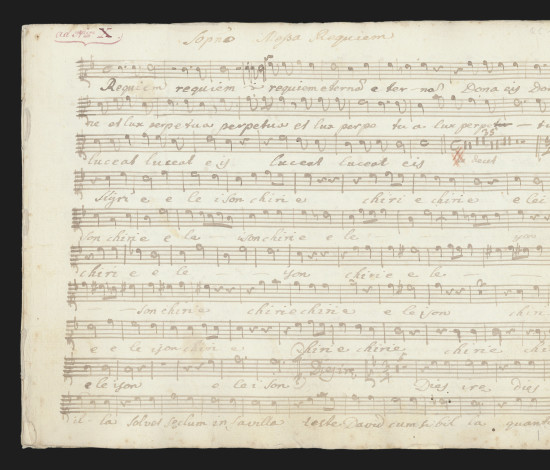 ad Nro X
Sopno Messa Requiem
Requiem requiem requiem eterna e ter - na Dona eis Don
ne et lux perpetua perpetua et lux perpe tu a lux perpe
35
luceat luceat eis. Luceat luceat eis Te decet
e e le ison chirie chiri e chirie e lei
son chirie e le - son chirie e le - - yson
chiri e e le - - ison chirie e le -
- son chirie chiriechirie e le ison chiri
e e le ison chiri e chirie chirie chirie chi
Dies ire
e leison e lei son Dies ire dies
il la solvet seclum in favilla teste David cum sibil la quant